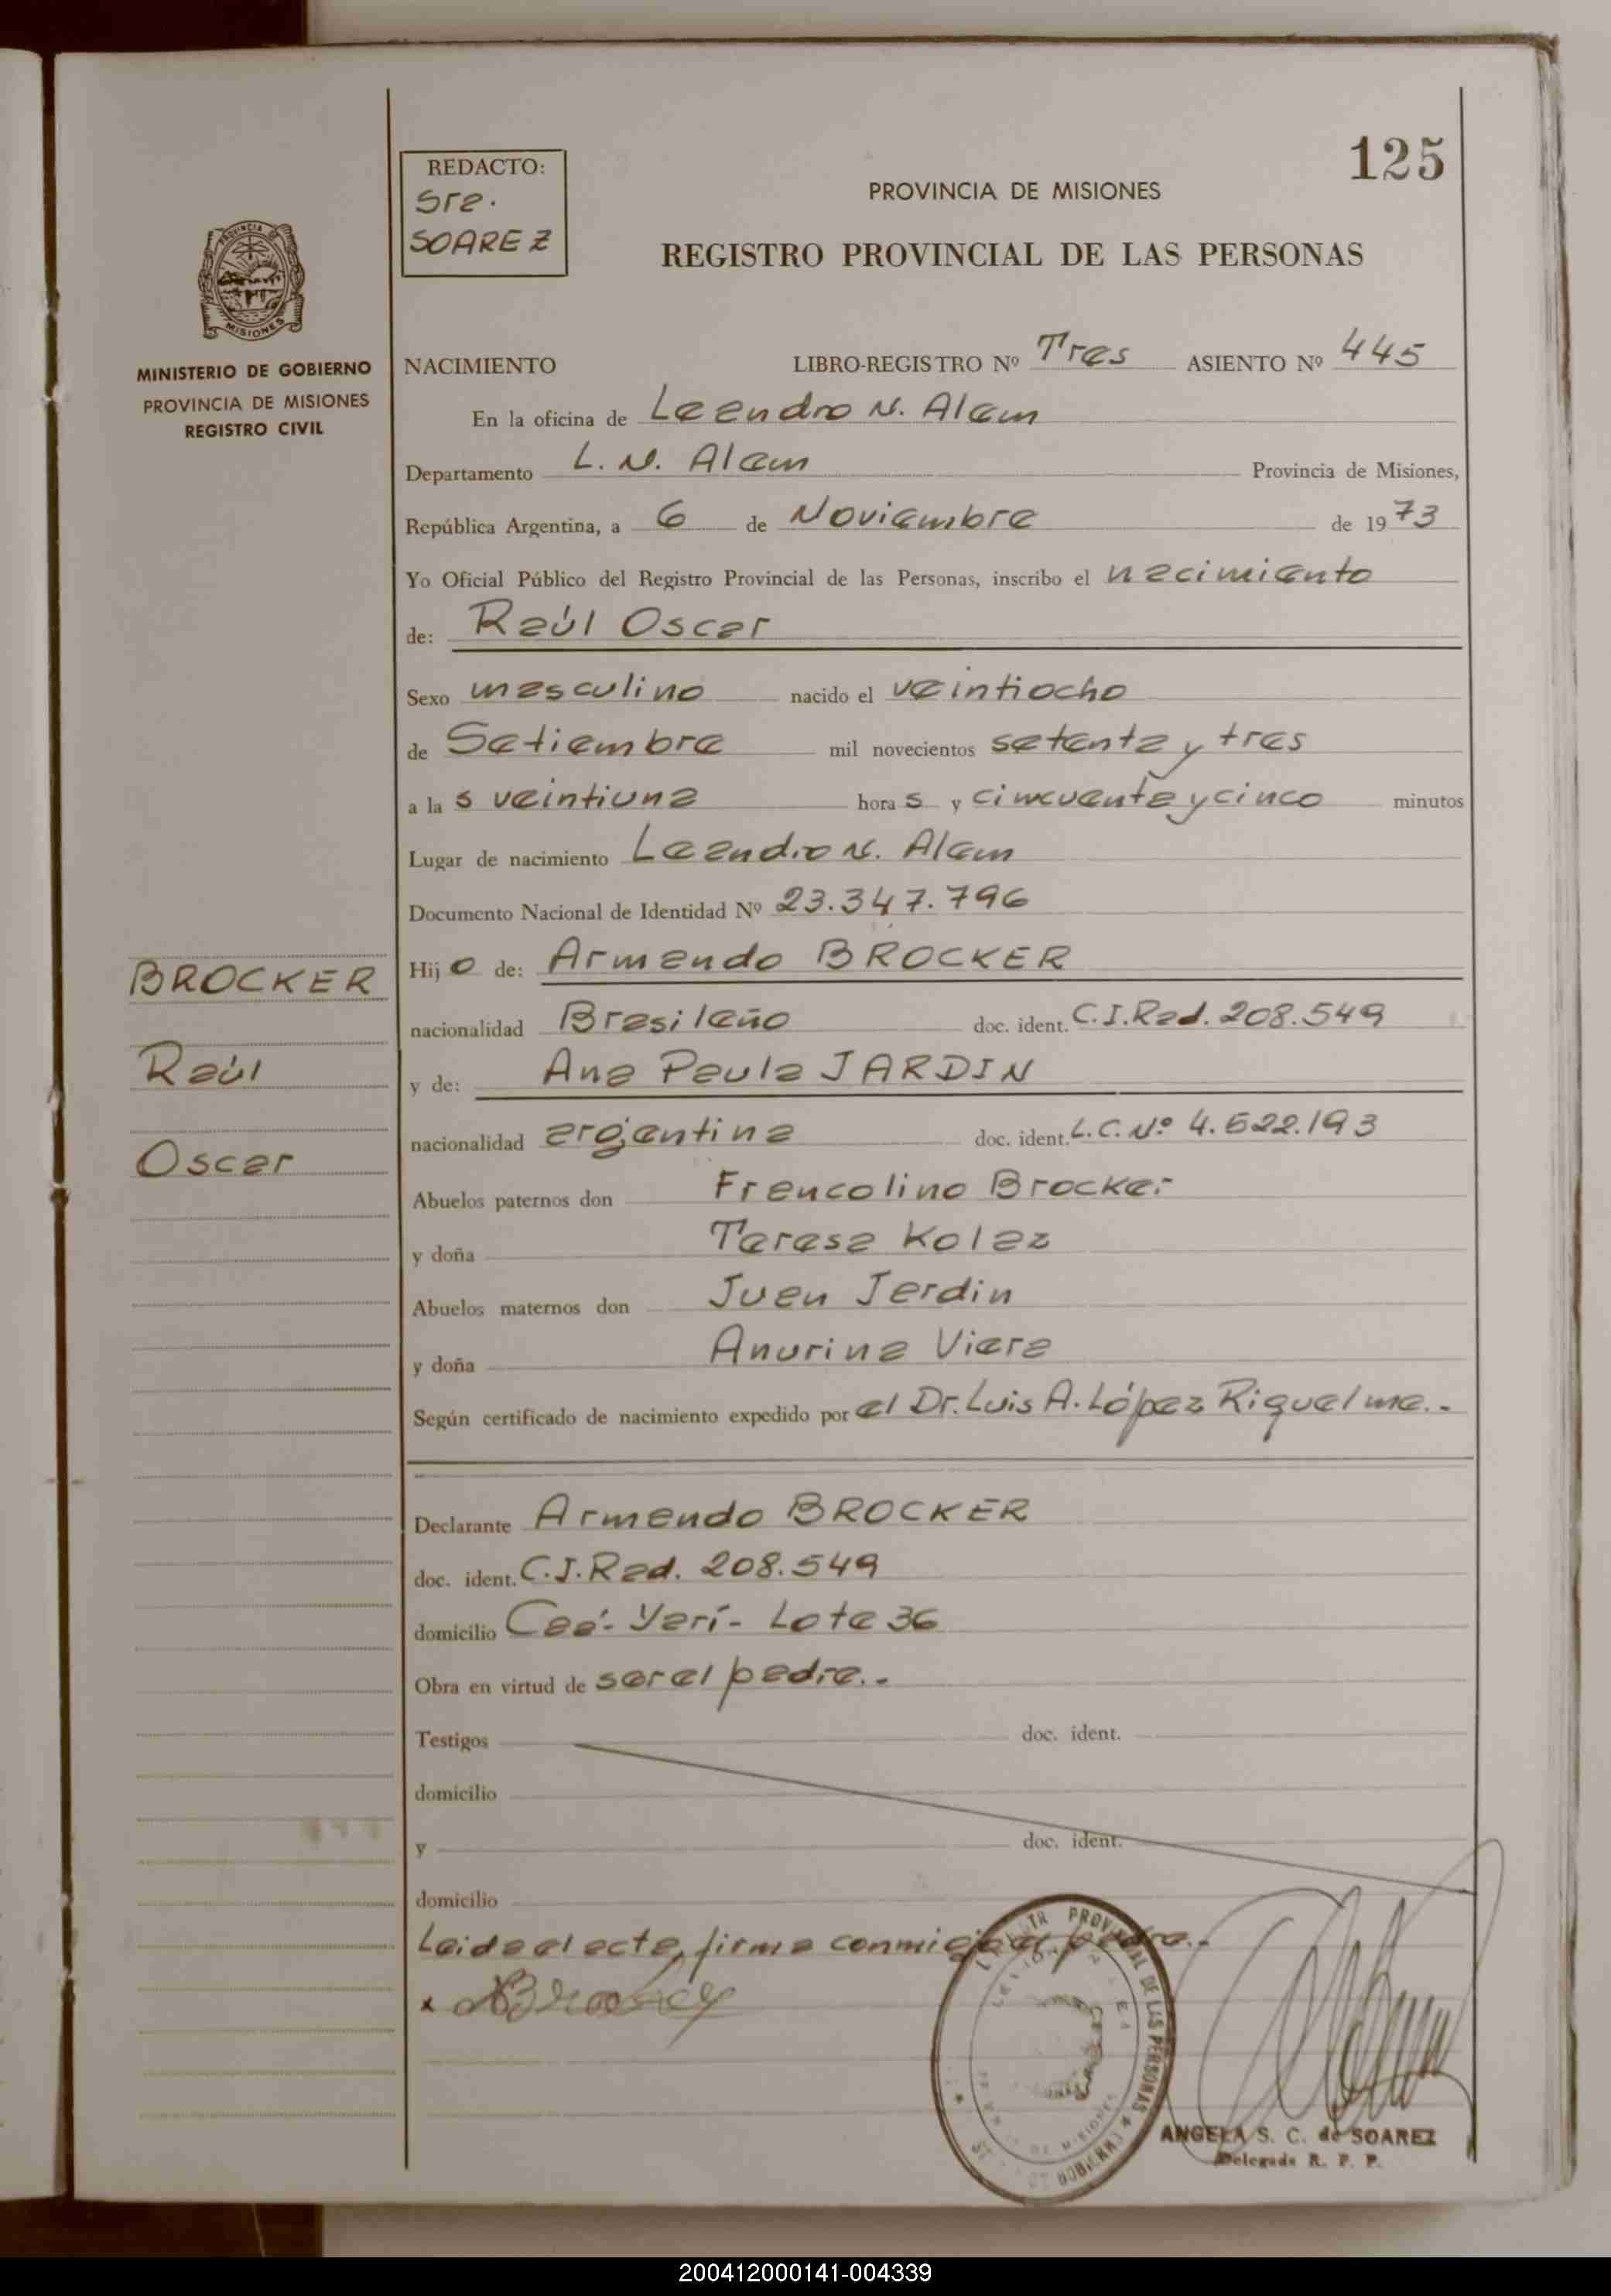 125
REDACTO:
Sra.
SOAREZ
PROVINCIA DE MISIONES
REGISTRO PROVINCIAL DE LAS PERSONAS
MISIONES
MINISTERIO DE GOBIERNO
PROVINCIA DE MISIONES
REGISTRO CIVIL
NACIMIENTO LIBRO-REGISTRO Nº Tres ASIENTO Nº 445
En la oficina de Leandro N. Alem
Departamento L. N. Alem Provincia de Misiones,
República Argentina, a 6 de Noviembre de 1973
Yo Oficial Público del Registro Provincial de las Personas, inscribo el nacimiento
de: Raúl Oscar
Sexo masculino nacido el veintiocho
de Setiembre mil novecientos setenta y tres
a las veintiuna horas y cincuenta y cinco minutos
Lugar de nacimiento Leandro N. Alem
Documento Nacional de Identidad Nº 23.347.796
BROCKER
Raúl
Oscar
Hijo de: Armando BROCKER
nacionalidad Brasileño doc. ident. C.I.Rad. 208.549
y de: Ana Paula JARDIN
nacionalidad argentina doc. ident. L.C.Nº 4.622.193
Abuelos paternos don Francolino Brocker
y doña Teresa Kolaz
Abuelos maternos don Juan Jardin
y doña Anurina Viera
Según certificado de nacimiento expedido por el Dr. Luis A. López Riquelme.-
Declarante Armando BROCKER
doc. ident. C.I.Rad. 208.549
domicilio Caá-Yarí- Lote 36
Obra en virtud de ser el padre.-
Testigos doc. ident.
domicilio
y doc. ident.
domicilio
Leida el acta, firma conmigo el padre.-
x ABrocker
ANGELA S. C. de SOAREZ
Delegada R. P. P.
200412000141-004339